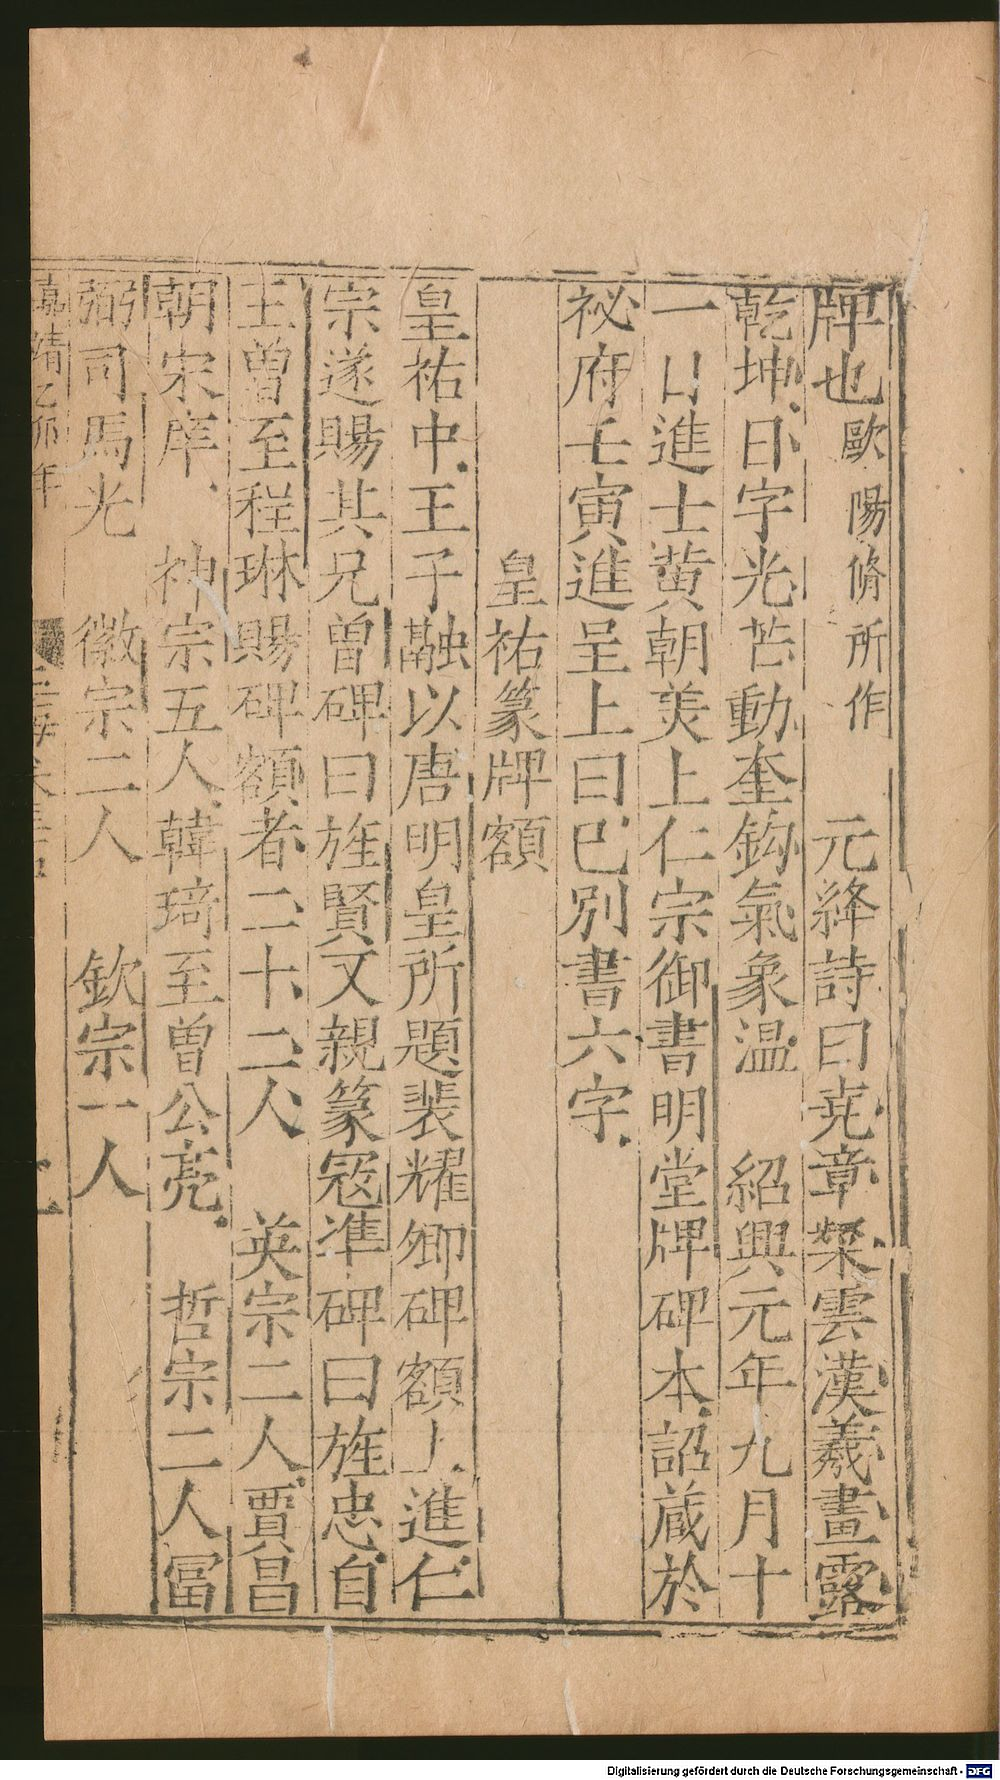 牌也歐陽脩所作　元絳詩曰堯章槩雲漢羲畫露
乾坤日字光芒動奎鈎氣象温　紹興元年九月十
一日進士黄朝美上仁宗御書明堂牌碑本詔藏於
祕府壬寅進呈上曰已别書六字
皇祐篆牌額
皇祐中王子融以唐明皇所題裴耀卿碑額上進仁
宗遂賜其兄曾碑曰旌賢又親篆冦準碑曰旌忠自
王曾至程琳賜碑額者二十二人　英宗二人賈昌
朝宋庠　神宗五人韓琦至曽公亮　哲宗二人冨
弼司馬光　徽宗二人　欽宗一人
嘉靖乙卯年
Digitalisierung gefördert durch die Deutsche Forschungsgemeinschaft - DFG